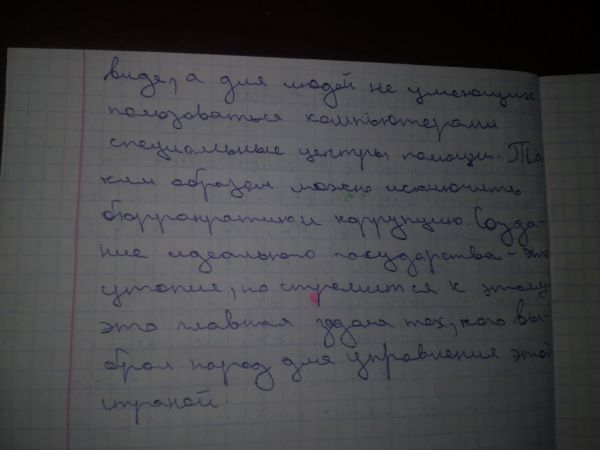 виде, а для людей не умеющих
пользоваться компьютерами
специальные центры помощи. Та-
ким образом можно исключить
бюрократию и коррупцию. Созда-
ние идеального государства - это
утопия, но стремится к этому
это главная задача тех, кого вы-
брал народ для управления этой
страной.